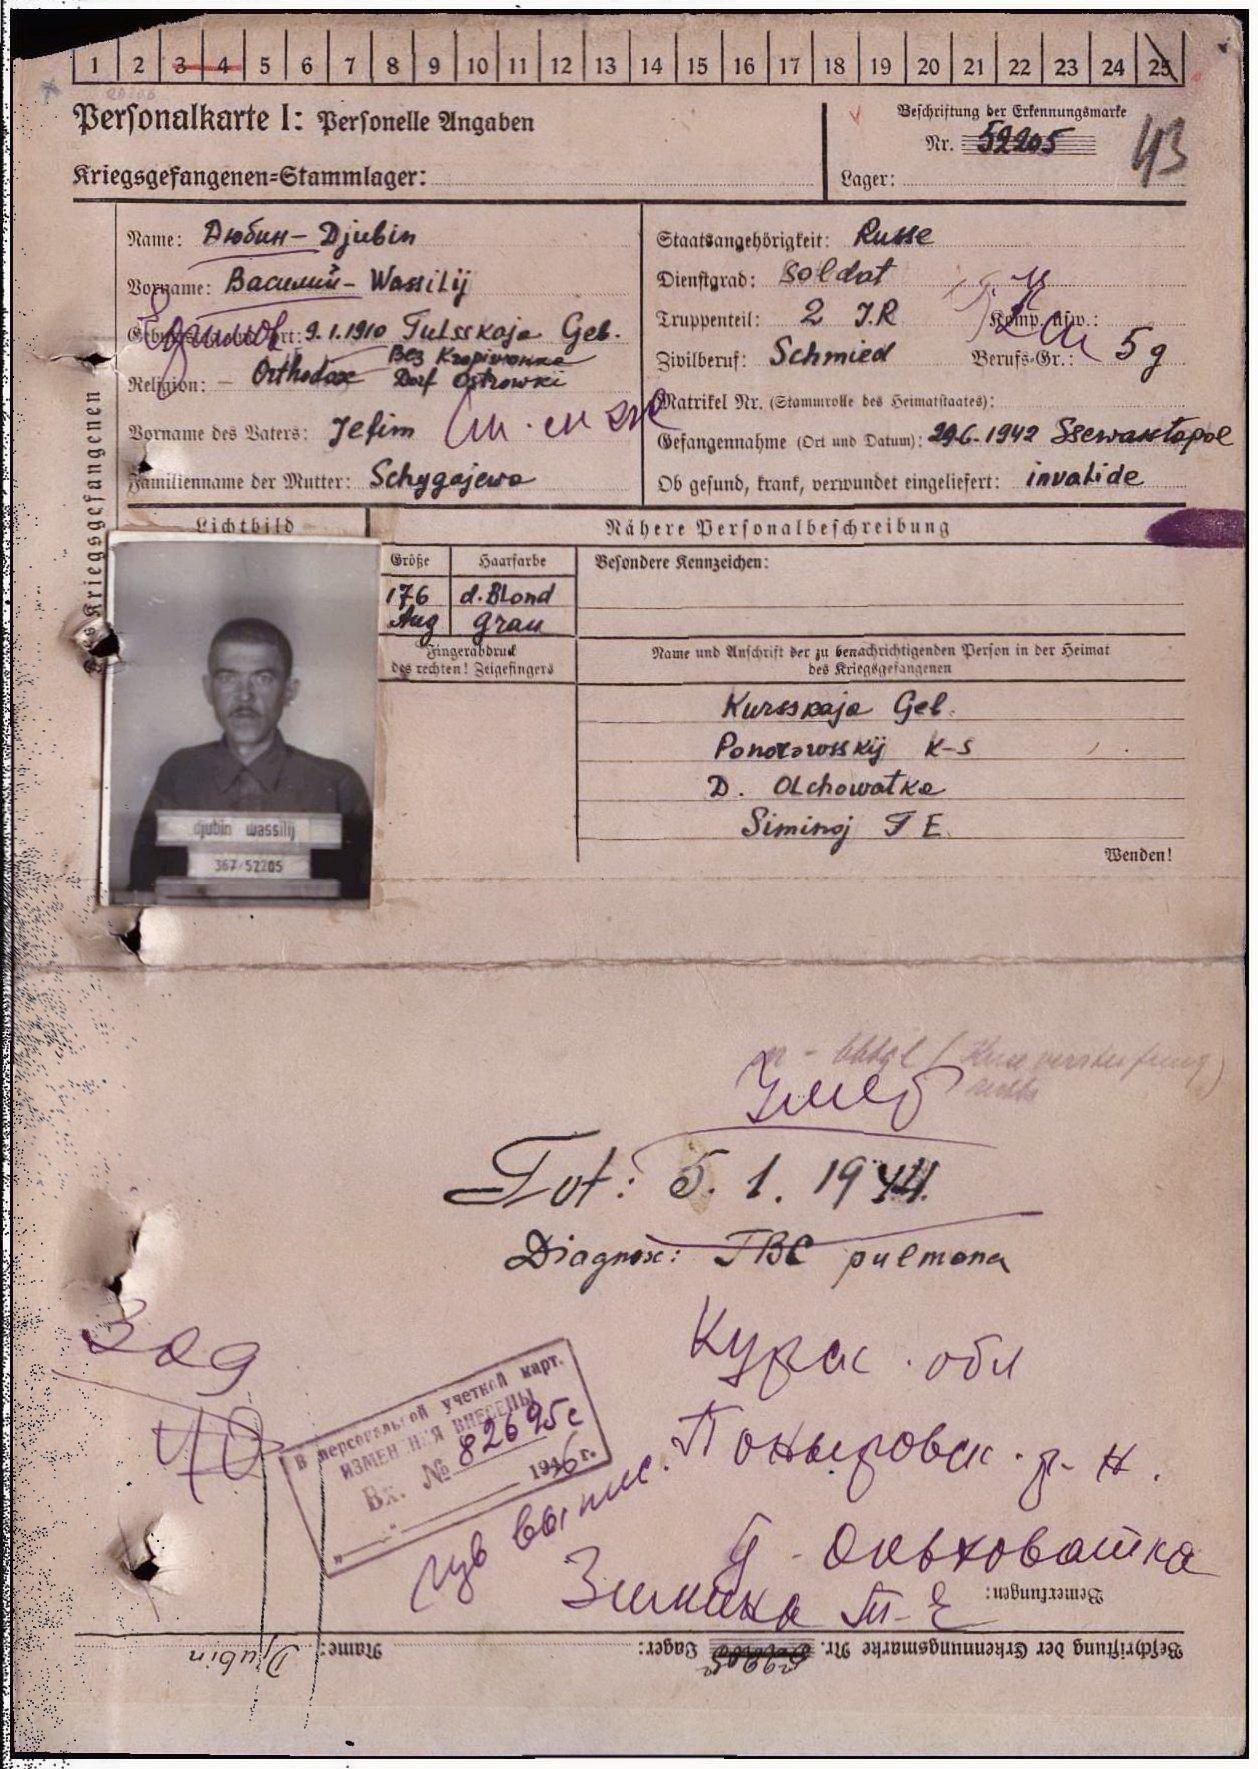 1 2 3 4 5 6 7 8 9 10 11 12 13 14 15 16 17 18 19 20 21 22 23 24 25
Personalkarte I: Personelle Angaben
Kriegsgefangenen=Stammlager:
Beschriftung der Erkennungsmarke
Nr. 52205
43
Lager:
des Kriegsgefangenen
Name: Дюбин - Djubin
Vorname: Василий - Wassilij
9.1.1910 Tulsskaja Geb.
Bez Krapiwonka
Religion: - Orthodox Dorf Ostrowki
Vorname des Vaters: Jefim
Familienname der Mutter: Schygajewa
Staatsangehörigkeit: Russe
Dienstgrad: Soldat
Truppenteil: 2 J.R Komp. usw.:
Zivilberuf: Schmied Berufs-Gr.: 5g
Matrikel Nr. (Stammrolle des Heimatstaates):
Gefangennahme (Ort und Datum): 29.6.1942 Ssewastopol
Ob gesund, krank, verwundet eingeliefert: invalide
Lichtbild
Nähere Personalbeschreibung
Größe Haarfarbe
176 d.Blond
Aug grau
Besondere Kennzeichen:
Fingerabdruck
des rechten! Zeigefingers
Name und Anschrift der zu benachrichtigenden Person in der Heimat
des Kriegsgefangenen
Kursskaja Geb.
Ponorowsskij K-S
D. Olchowatka
Siminoj T E.
Wenden!
djubin wassilij
367/52205
Tot: 5. 1. 1944.
Diagnose: TBC pulmona
Курск. обл
Поныровск. р-н.
д - Ольховатка
Зимина Т-Е
В персональной учетной карт.
ИЗМЕНЕНИЯ ВНЕСЕНЫ
Вх. № 82695с
1946 г.
Bemerkungen:
Beschriftung der Erkennungsmarke Nr. 52205 Lager: Name: Djubin